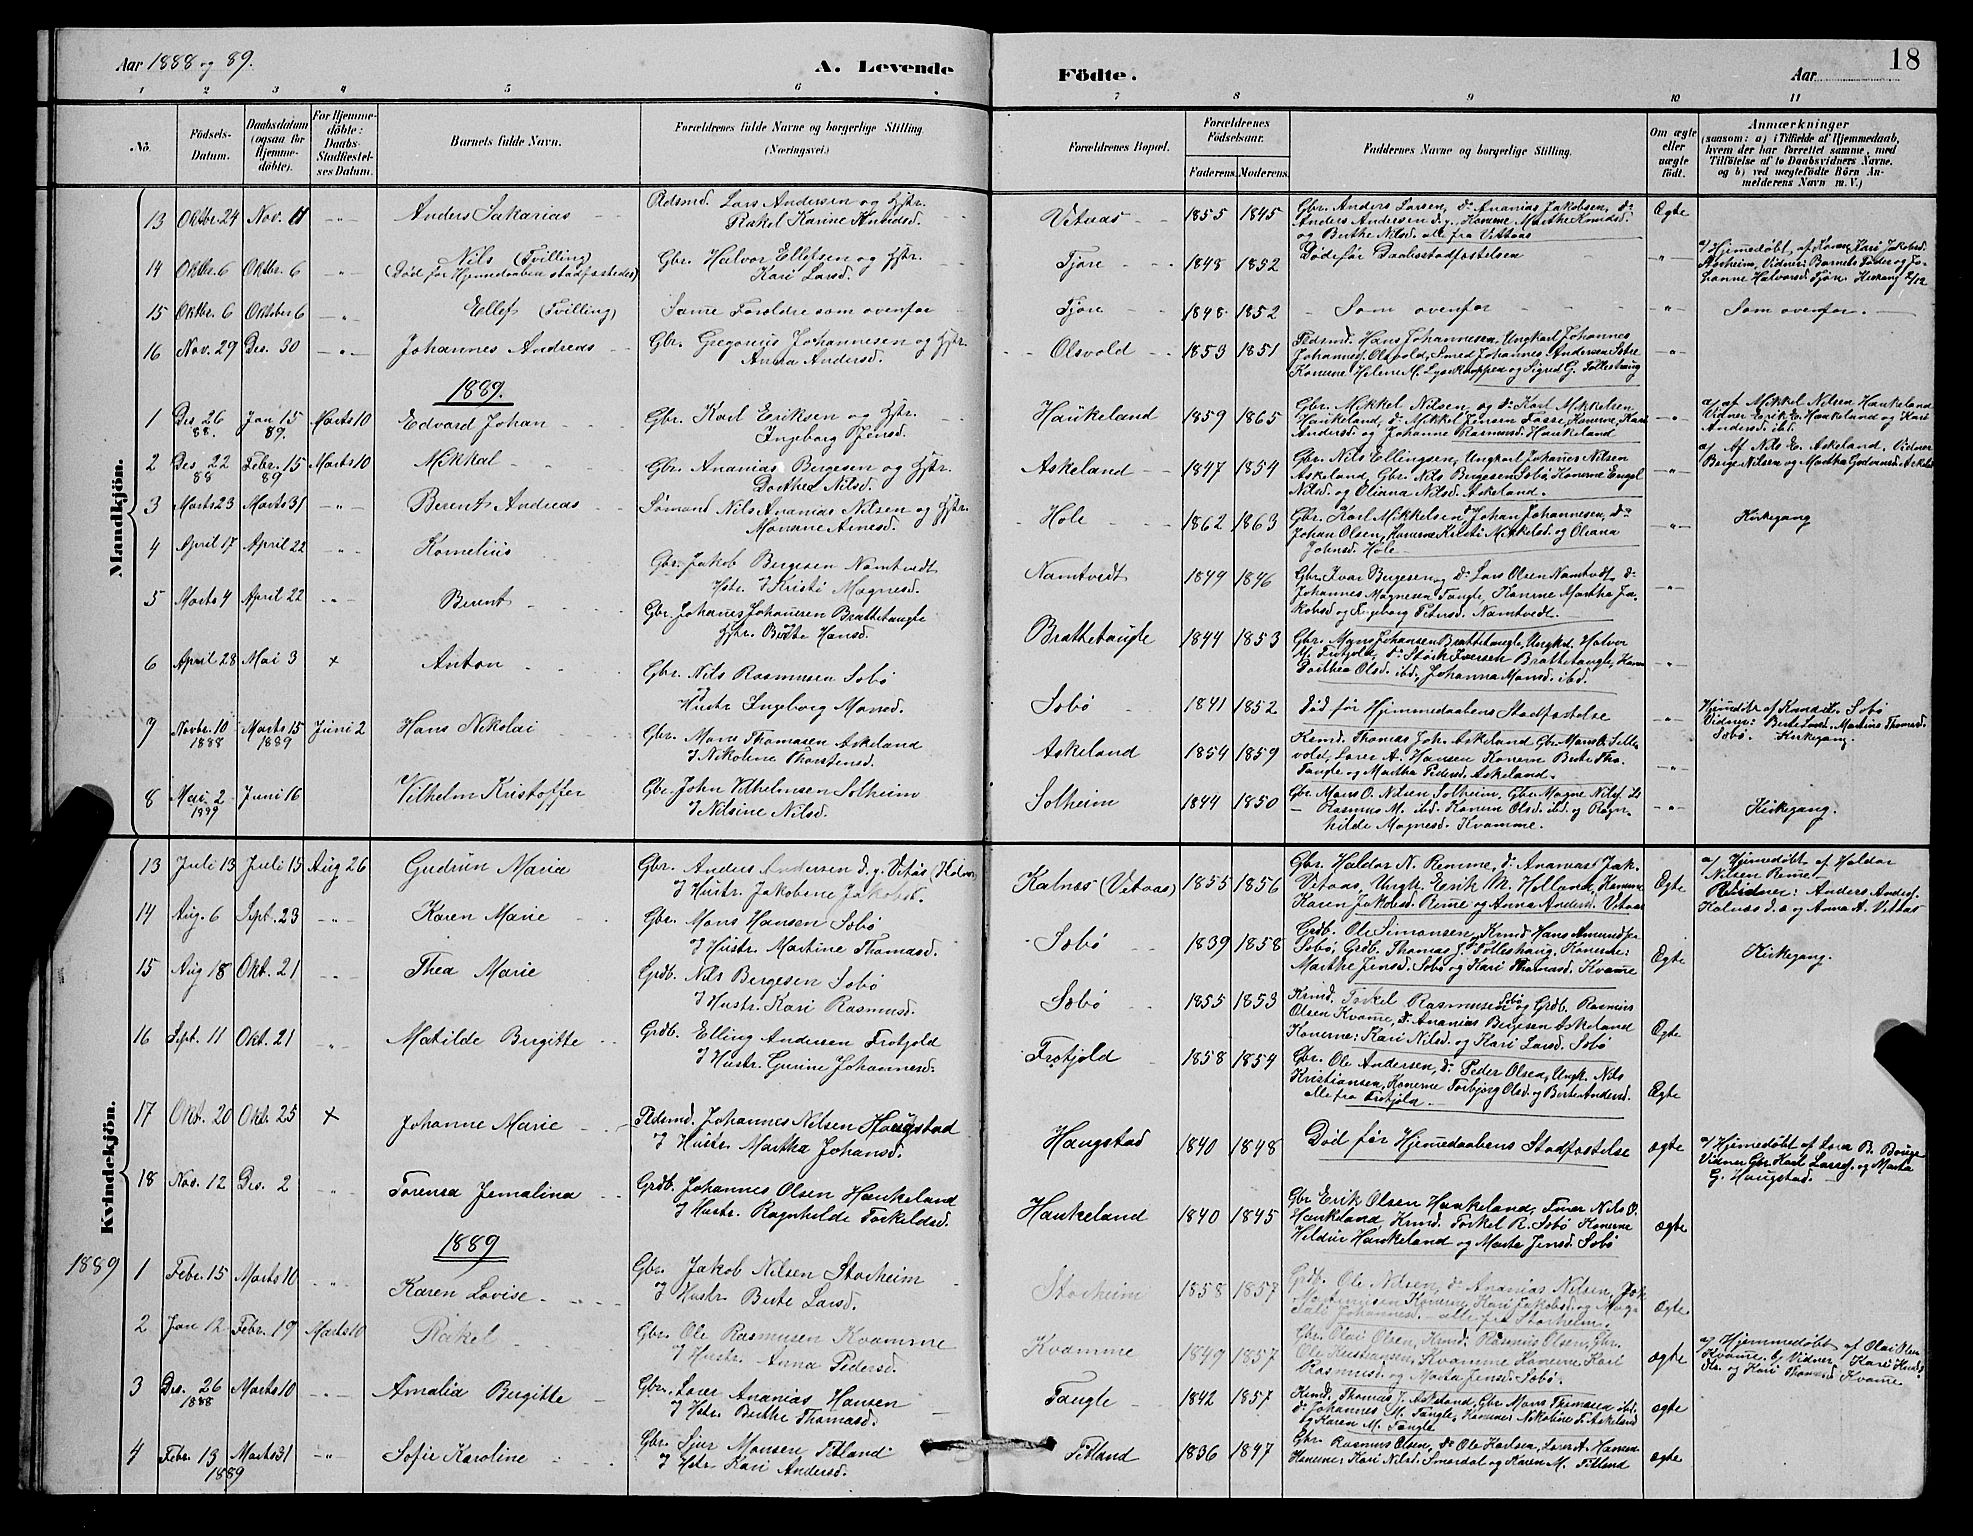 Aar 1888 og 89.
A. Levende Fødte.
Aar
18
1 2 3 4 5 6 7 8 9 10 11
No.
Fødsels-Datum.
Daabsdatum (ogsaa for Hjemme-døbte).
For Hjemme-døbte: Daabs-Stadfæstel-ses Datum.
Barnets fulde Navn.
Forældrenes fulde Navne og borgerlige Stilling. (Næringsvei.)
Forældrenes Bopæl.
Forældrenes Fødselsaar.
Faderens. Moderens.
Faddernes Navne og borgerlige Stilling.
Om ægte eller uægte født.
Anmærkninger
(saasom: a) i Tilfælde af Hjemmedaab, hvem der har forrettet samme, med Tilføielse af to Daabsvidners Navne. og b) ved uægtefødte Børn An-melderens Navn m. V.)
Mandkjøn.
13 Oktbr. 24 Nov. 11 -"- Anders Sakarias Rdsmd. Lars Andersen og Hstr. Rakel Karine Amundsd. Vitaas 1855 1845 Gbr. Anders Larsen, do Ananias Jakobsen, do
Anders Andersen d.y. Konerne Marthe Knudsd.
og Berthe Nilsd. alle fra Vittaas Ægte
14 Oktbr. 6 Oktbr. 6 -"- Nils (Tvilling)
(Død før Hjemmedaaben stadfæstedes) Gbr. Halvor Ellefsen og Hstr.
Kari Larsd. Fjøre 1848 1852 Døde før Daabsstadfæstelsen -"- a/ Hjemmedøbt af Kari Jakobsd.
Storheim, Vidner: Barnets Fader og Jo-
hanne Halvorsd. Fjøre.
15 Oktbr. 6 Oktober 6 -"- Ellef (Tvilling) Samme Forældre som ovenfor Fjøre 1848 1852 Som ovenfor -"- Som ovenfor.
16 Nov. 29 Des. 30 -"- Johannes Andreas Gbr. Gregorius Johannesen og Hstr.
Anna Andersd. Olsvold 1853 1851 Hans Johannesen, Ungkarl Johannes
Johannes. Olsvold, Smed Johannes Andersen
Konerne Helene M. Lyseknappen og Sigrid G. Tolleshaug -"-
1889.
1 Des. 26 88. Jan. 15 89. Marts 10 Edvard Johan Gbr. Karl Eriksen og Hstr.
Ingeborg Jensd. Haukeland 1859 1865 Gbr. Mikkel Nilsen, og do Karl Mikkelsen
Haukeland, do Mikkel Jensen Fosse, Konerne, Kari
Andersd. og Johanne Rasmusd. Haukeland -"- a/ af Mikkel Nilsen Haukeland
Vidner Erik E. Haukeland og Kari
Andersd. ibd.
2 Des. 22 88 Febr. 15 89 Marts 10 Mikkal Gbr. Ananias Bergesen og Hstr.
Dorthea Nilsd. Askeland 1847 1854 Gbr. Nils Ellingsen, Ungkarl Johannes Nilsen
Askeland, Gbr. Nils Bergesen Søbø, Konerne Engel
Nilsd. og Oliana Nilsd. Askeland. -"- a/ Af Nils E. Askeland, Vidner
Berge Nilsen og Martha
3 Marts 23 Marts 31 -"- Berent Andreas Sømand Nils Ananias Nilsen og Hstr.
Arnesd. Hole 1862 1863 Gbr. Karl Mikkelsen, do Johan Johannesen, do
Johan Olsen, Konerne Kristi Mikkelsd. og Oliana
Johnsd. Hole -"- Kirkegang
4 April 17 April 22 -"- Kornelius Gbr. Jakob Bergesen Namtvedt
Hstr. Kristi Magnesd. Namtvedt 1849 1846 Gbr. Ivar Bergesen og do Lars Olsen Namtvedt, do
Johannes Magnesen Tangle, Konerne Martha Ja-
kobsd og Ingeborg Petersd. Namtvedt. -"-
5 Marts 4 April 22 -"- Berent Gbr. Johannes Johannesen Brattetaugle
og Hstr. Berthe Hansd. Brattetaugle 1844 1853 Gbr. Mons Johansen Brattetaugle, Ungk. Halvor
M. Frotjold, do Størk Iversen Brattetaugle, Konerne
Dorthea Olsd. ibd., Johanna Monsd. ibd. -"-
6 April 28 Mai 3 x Anton Gbr. Nils Rasmusen Søbø
og Hustr Ingeborg Monsd. Søbø 1841 1852 Død før Hjemmedaabens Stadfæstelse -"- Hjemdøbt af Søbø
Vidner: Berte Larsd. Martine Thomasd.
Søbø. Kirkegang.
7 Novbr. 10 1888 Marts 15 1889 Juni 2 Hans Nikolai Gbr. Mons Thomasen Askeland
og Nikoline Thorstensd. Askeland 1854 1859 Krmd. Thomas Joh. Askeland Gbr. Mons
Lærer A. Hansen Konerne Berte Tho.
Tangle og Martha Pedersd. Askeland. -"-
8 Mai 2 1889 Juni 16 Vilhelm Kristoffer Gbr. John Vilhelmsen Solheim
og Nilsine Nilsd. Solheim 1844 1850 Gbr. Mons O. Nilsen Solheim, Gbr. Magne Nilsf.
Rasmus M. ibd. Konerne Olsd. ibd. og Ragn-
hilde Magnesd. Kvamme. -"- Kirkegang.
Kvindekjøn.
13 Juli 13 Juli 15 Aug 26 Gudrun Maria Gbr. Anders Andersen d.y. Vitås (Kalnes)
og Hustr. Jakobine Jakobsd. Kalnæs (Vitaas) 1855 1856 Gbr. Haldor N. Remme, do Ananias Jak.
Vitaas, Ungk. Erik M. Holland, Konerne
Karen Jakobsd. Remme og Anna Andersd. Vitaas Ægte a/ Hjemmedøbt af Haldor
Nilsen Remme
Vidner: Anders Andersf.
Kalnæs d.æ og Anna A. Vittaas
14 Aug. 6 Sept. 23 -"- Karen Marie Gbr. Mons Hansen Søbø
og Hustr. Martine Thomasd. Søbø 1839 1858 Grdb. Ole Simonsen, Krmd. Hans Amundsen
Søbø, Grdb. Thomas J. Tolleshaug, Konerne:
Marthe Jensd. Søbø og Kari Thomasd. Kvamme Ægte Kirkegang.
15 Aug 18 Okt. 21 -"- Thea Marie Grdb. Nils Bergesen Søbø
og Hustr. Kari Rasmusd. Søbø 1855 1853 Krmd. Torkel Rasmusen Søbø og Grdb. Rasmus
Olsen Kvamme, do Ananias Bergesen Askeland
Konerne: Kari Nilsd. og Kari Larsd. Søbø Ægte
16 Sept. 11 Okt. 21 -"- Matilde Birgitte Grdb. Elling Andersen Frotjold
og Hustr. Gurine Johannesd. Frotjold 1858 1854 Gbr. Ole Andersen, do Peder Olsen, Ungk. Nils
Kristiansen, Konerne Torbjørg Olsd. og Berte Andersd.
alle fra Frotjold. Ægte
17 Okt. 20 Okt. 25 x Johanne Marie Johannes Nilsen Haugstad
og Hustr. Martha Johansd. Haugstad 1840 1848 Død før Hjemmedaabens Stadfæstelse ægte a/ Hjemmedøbt af Lars B. Børge
Vidner Gbr. Karl Larsen og Marta
G. Haugstad.
18 Nov. 12 Des. 2 -"- Torensa Jemalina Grdb. Johannes Olsen Haukeland
og Hustr. Ragnhilde Torkeldsd. Haukeland 1840 1845 Gbr Erik Olsen Haukeland, Lærer Nils O.
Haukeland, Krmd. Torkel R. Søbø Konerne
Hildur Haukeland og Marta Jensd. Søbø ægte
1889
1889 1 Febr. 15 Marts 10 -"- Karen Lovise Gbr. Jakob Nilsen Storheim
og Hustr. Berte Larsd. Storheim 1858 1857 Grdb. Ole Nilsen, do Ananias Nilsen, Jak
Martinusen Konerne Kari Jakobsd. og
Johannesd. alle fra Storheim. ægte
2 Jan 12 Febr. 19 Marts 10 Rakel Gbr. Ole Rasmusen Kvamme
og Hustr. Anna Pedersd. Kvamme 1849 1857 Gbr. Olai Olsen, Krmd. Rasmus Olsen, Gbr.
Ole Kristiansen, Kvamme Konerne Kari
Rasmusd. og Marta Jensd. Søbø. ægte a/ Hjemmedøbt af Olai Olsen
Kvamme, b/ Vidner, Kari
og Kari Thomasd. Kvamme
3 Des. 26 1888 Marts 10 -"- Amalia Birgitte Gbr. Lærer Ananias Hansen
og Hstr. Berthe Thomasd. Tangle 1842 1857 Krmd. Thomas J. Askeland, Gbr. Mons Thomasen ibd.
do Johannes M. Tangle, Konerne Nikoline T. Askeland
og Karen M. Tangle ægte
4 Febr. 13 1889 Marts 31 -"- Sofie Karoline Gbr. Sjur Monsen Titland
og Hstr. Kari Andersd. Titland 1836 1847 Gbr. Rasmus Olsen, do Ole Karlsen, Lærer A. Hansen
Konerne: Kari Nilsd. Smørdal og Karen M. Titland ægte